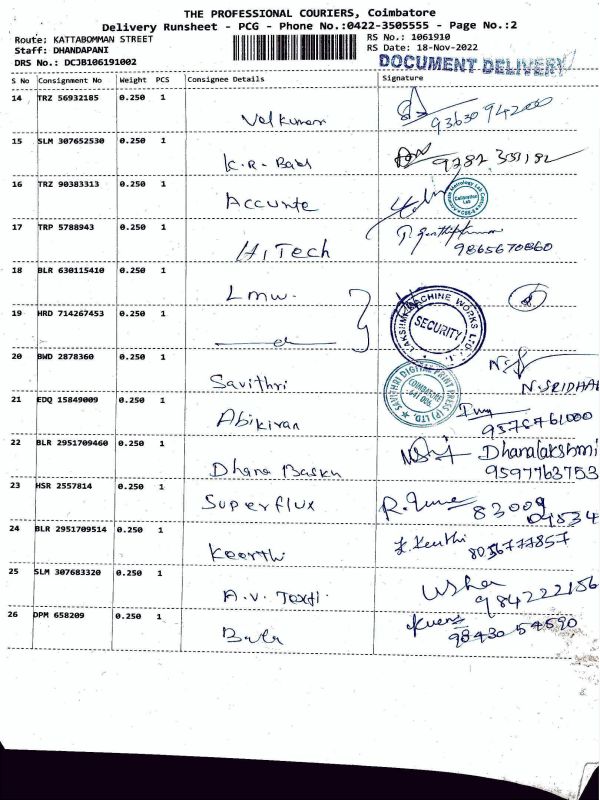 THE PROFESSIONAL COURIERS, Coimbatore
Delivery Runsheet - PCG - Phone No.:0422-3505555 - Page No.:2
Route: KATTABOMMAN STREET RS No.: 1061910
Staff: DHANDAPANI RS Date: 18-Nov-2022
DRS No.: DCJB106191002 DOCUMENT DELIVERY
S No Consignment No Weight PCS Consignee Details Signature
14 TRZ 56932185 0.250 1
Valkumar 93630 94200
15 SLM 307652530 0.250 1
K.R. Babs
16 TRZ 90383313 0.250 1
Accurate Calibration Lab
17 TRP 5788943 0.250 1
Hi Tech 9865670860
18 BLR 630115410 0.250 1
Lmw.
LAKSHMI MACHINE WORKS LTD. SECURITY
19 HRD 714267453 0.250 1
20 BWD 2878360 0.250 1
Savithri N.SRIDHAR
SAVITHRI DIGITAL PRINT PRESS (P) LTD. COIMBATORE
21 EDQ 15849009 0.250 1
Abikiran
22 BLR 2951709460 0.250 1
Dhana Basku Dhanalakshmi
9597763753
23 HSR 2557814 0.250 1
Superflux 83009
04534
24 BLR 2951709514 0.250 1
Keerthi K. Keerthi
8056777857
25 SLM 307683320 0.250 1
A.V. Texti. Usha
984222156
26 DPM 658209 0.250 1
Bala 98430 54590